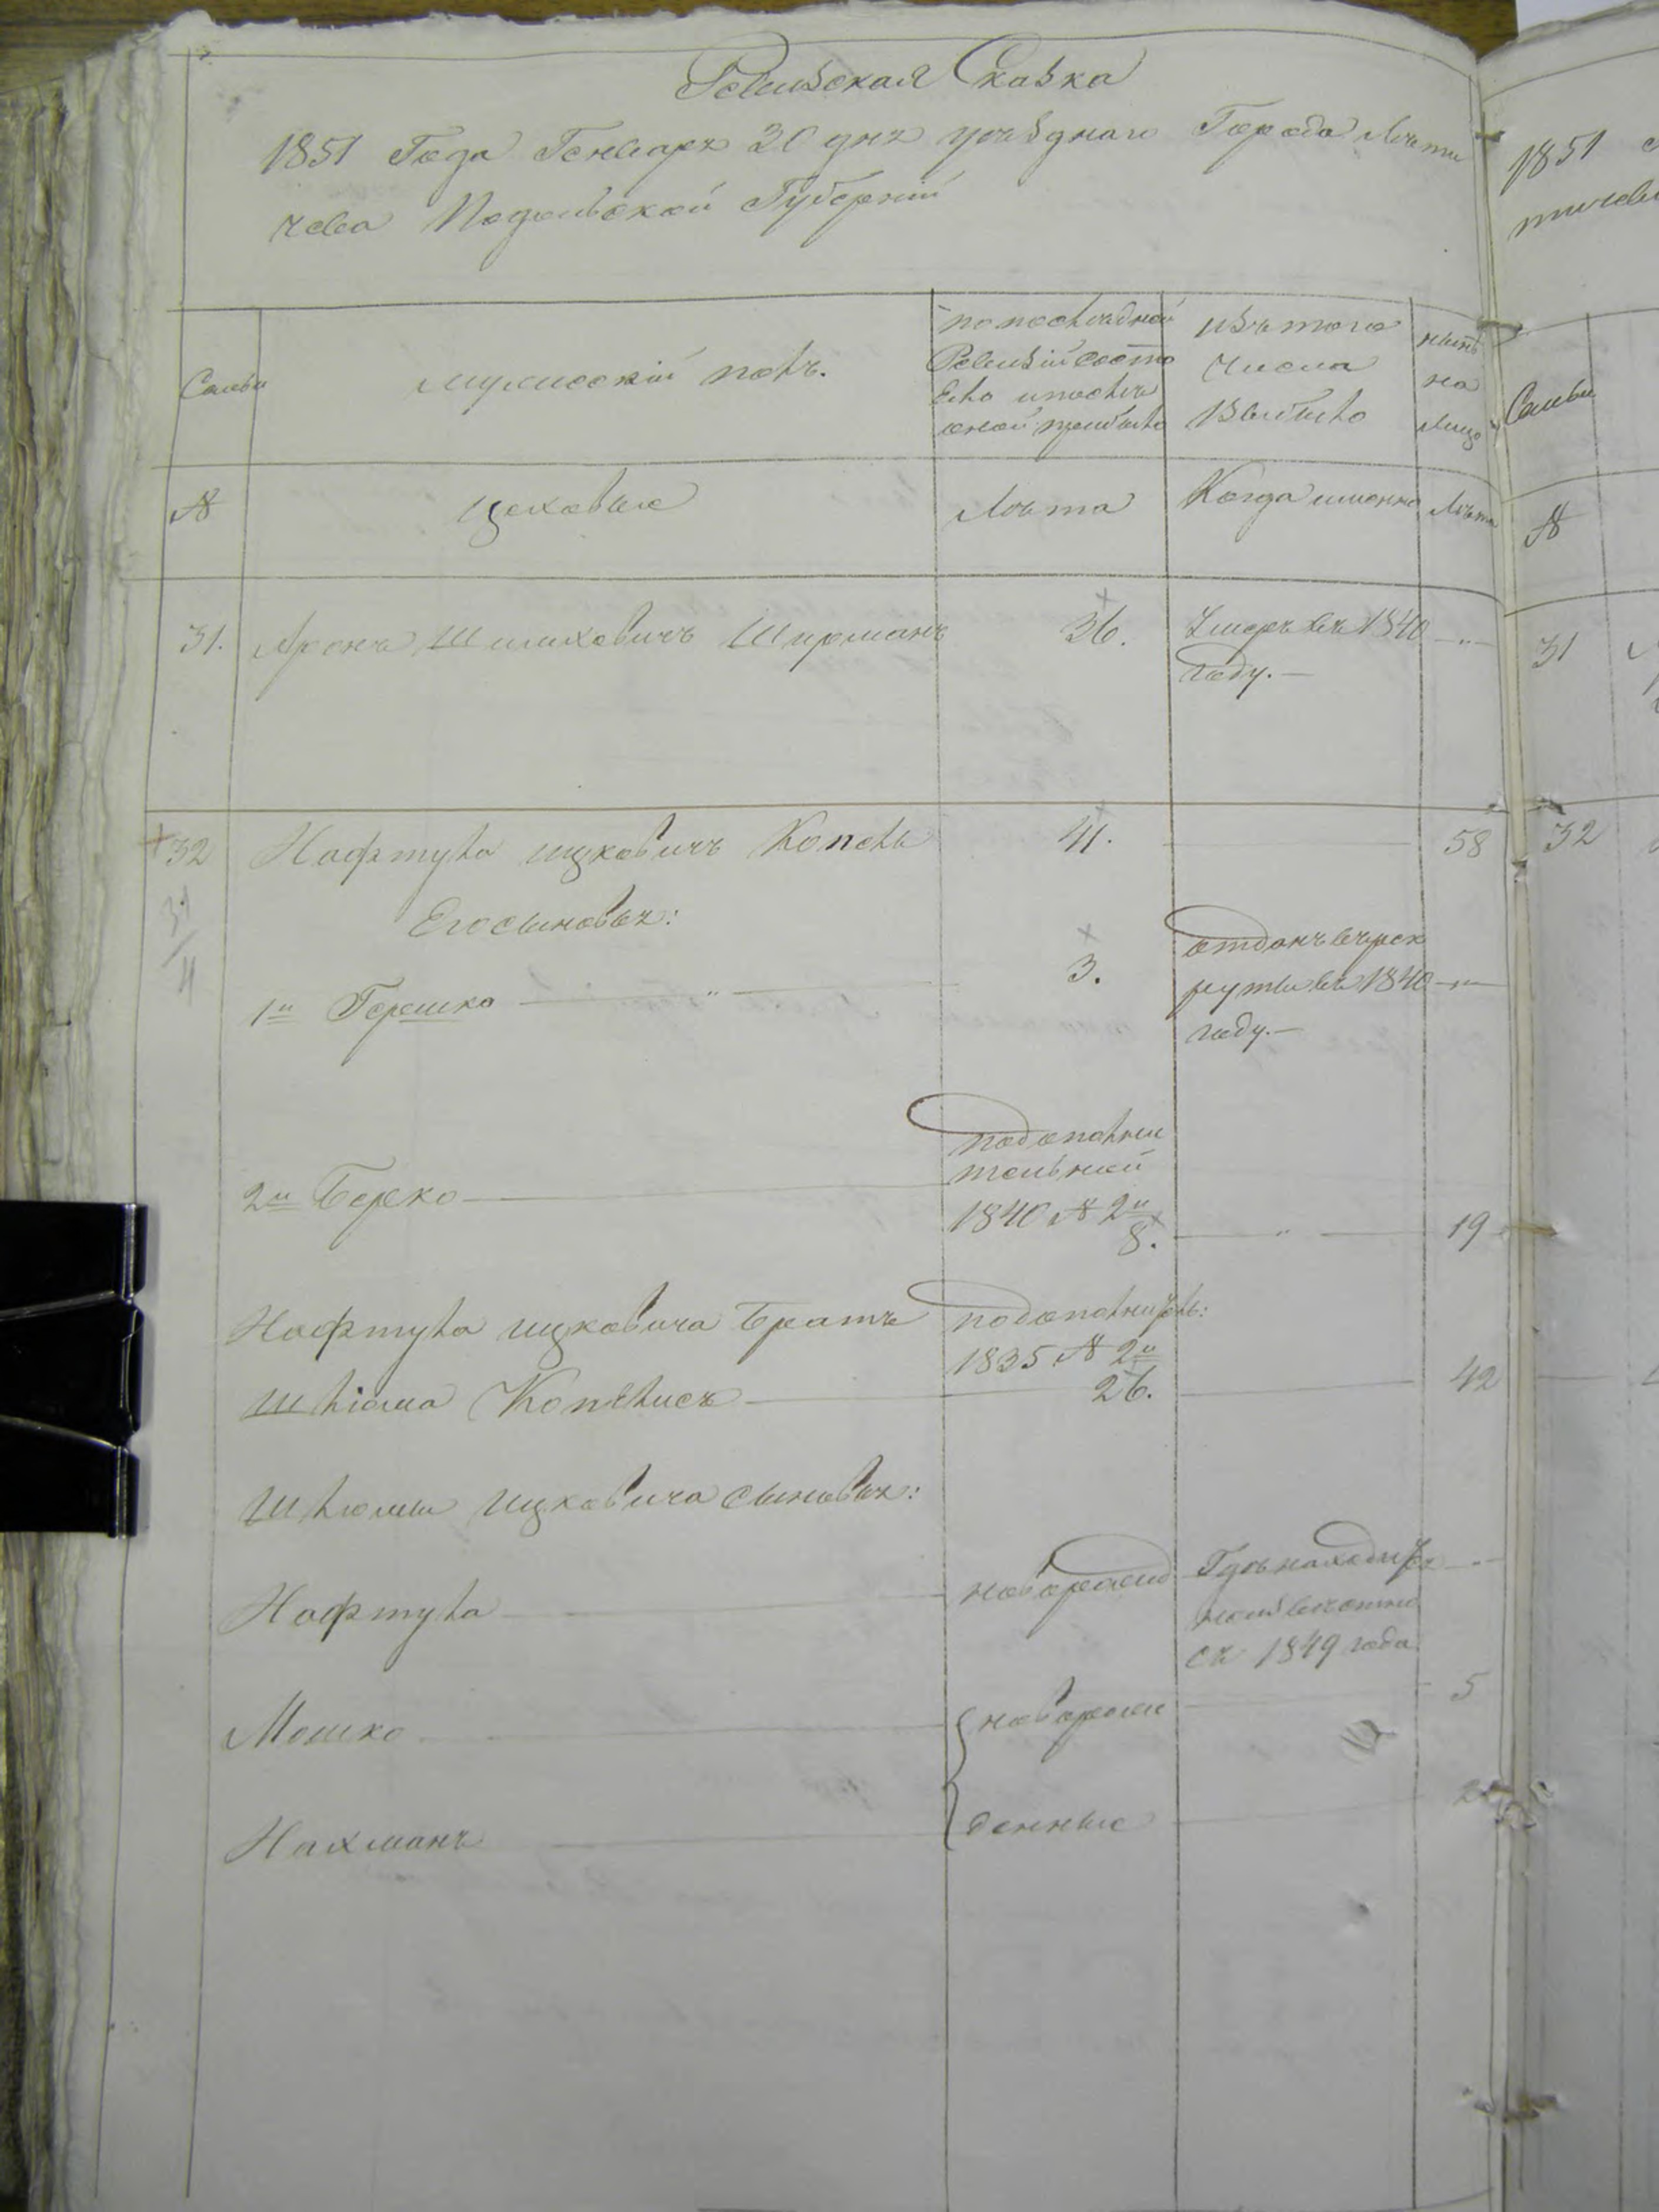 Ревизская Сказка
1851 Года Генваря 30 дня уѣзднаго Города Лѣти
чева Подольской Губерніи
Семьи
мужескій полъ.
по последней
Ревизіи состо
яло и после
оной прибыло
изъ того
числа
выбыло
нынѣ
на
лицо
№
цеховые
Лѣта
Когда именно
Лѣта
31. Аронъ Шмиховичъ Ширманъ 36. Умеръ въ 1840 — " —
году. —
32 Нафтула ицковичъ Копель 41. 58
Его сыновья:
1й Гершко — " — 3. отданъ въ рек
руты въ 1840 — " —
году. —
2й Берко — подополни
тельной
1840 № 2й
8. — " — 19
Нафтула ицковича братъ подополнитель:
1835 № 2й
Шліома Копелисъ — 26. 42
Шлюмы Ицковича сыновья:
Нафтула — новорожд Гдѣ находится — " —
неизвестно
съ 1849 года
Мошко — новорож 5
Нахманъ — денные 2
1851
тичева
Семьи
№
31
32